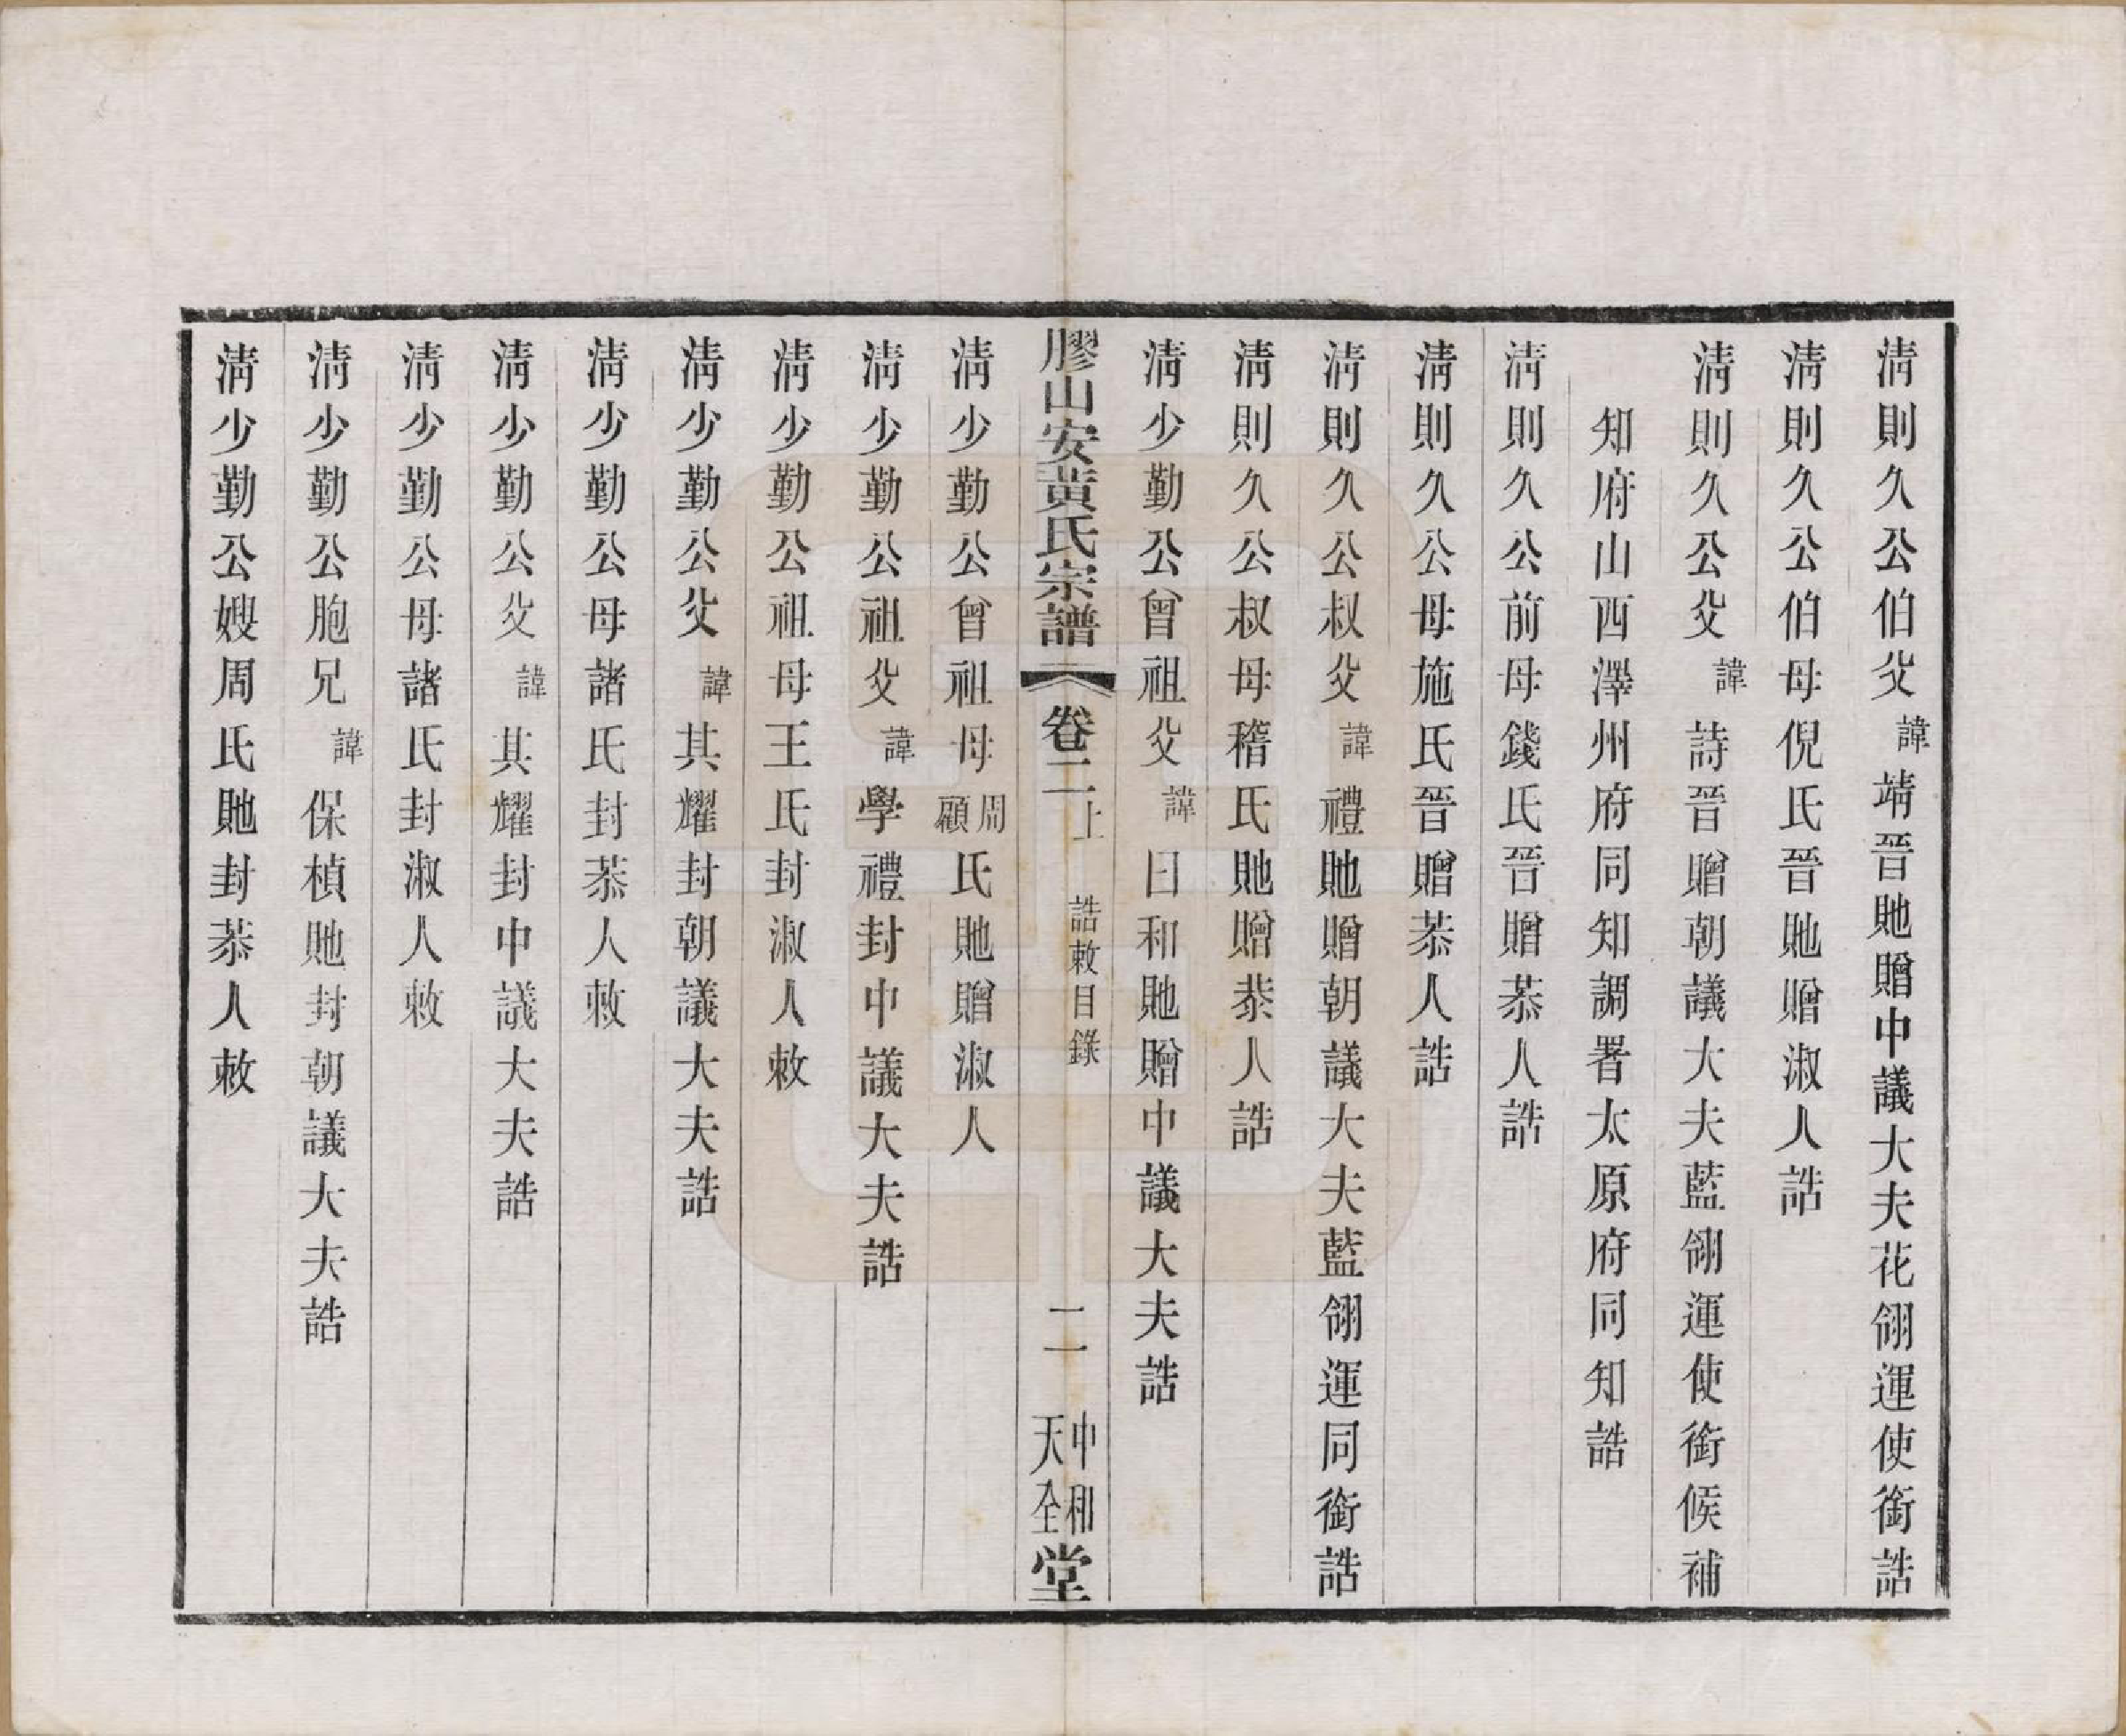 淸則久公伯父諱靖晉貤贈中議大夫花翎運使銜誥
淸則久公伯母倪氏晉貤贈淑人誥
淸則久公父諱詩晉贈朝議大夫藍翎運使銜候補
知府山西澤州府同知調署太原府同知誥
淸則久公前母錢氏晉贈恭人誥
淸則久公母施氏晉贈恭人誥
淸則久公叔父諱禮貤贈朝議大夫藍翎運同銜誥
淸則久公叔母稽氏貤贈恭人誥
淸少勤公曾祖父諱日和貤贈中議大夫誥
膠山安黃氏宗譜 卷二上 誥敕目錄 二 中和天全堂
淸少勤公曾祖母周顧氏貤贈淑人
淸少勤公祖父諱學禮封中議大夫誥
淸少勤公祖母王氏封淑人敕
淸少勤公父諱其耀封朝議大夫誥
淸少勤公母諸氏封恭人敕
淸少勤公父諱其耀封中議大夫誥
淸少勤公母諸氏封淑人敕
淸少勤公胞兄諱保楨貤封朝議大夫誥
淸少勤公嫂周氏貤封恭人敕